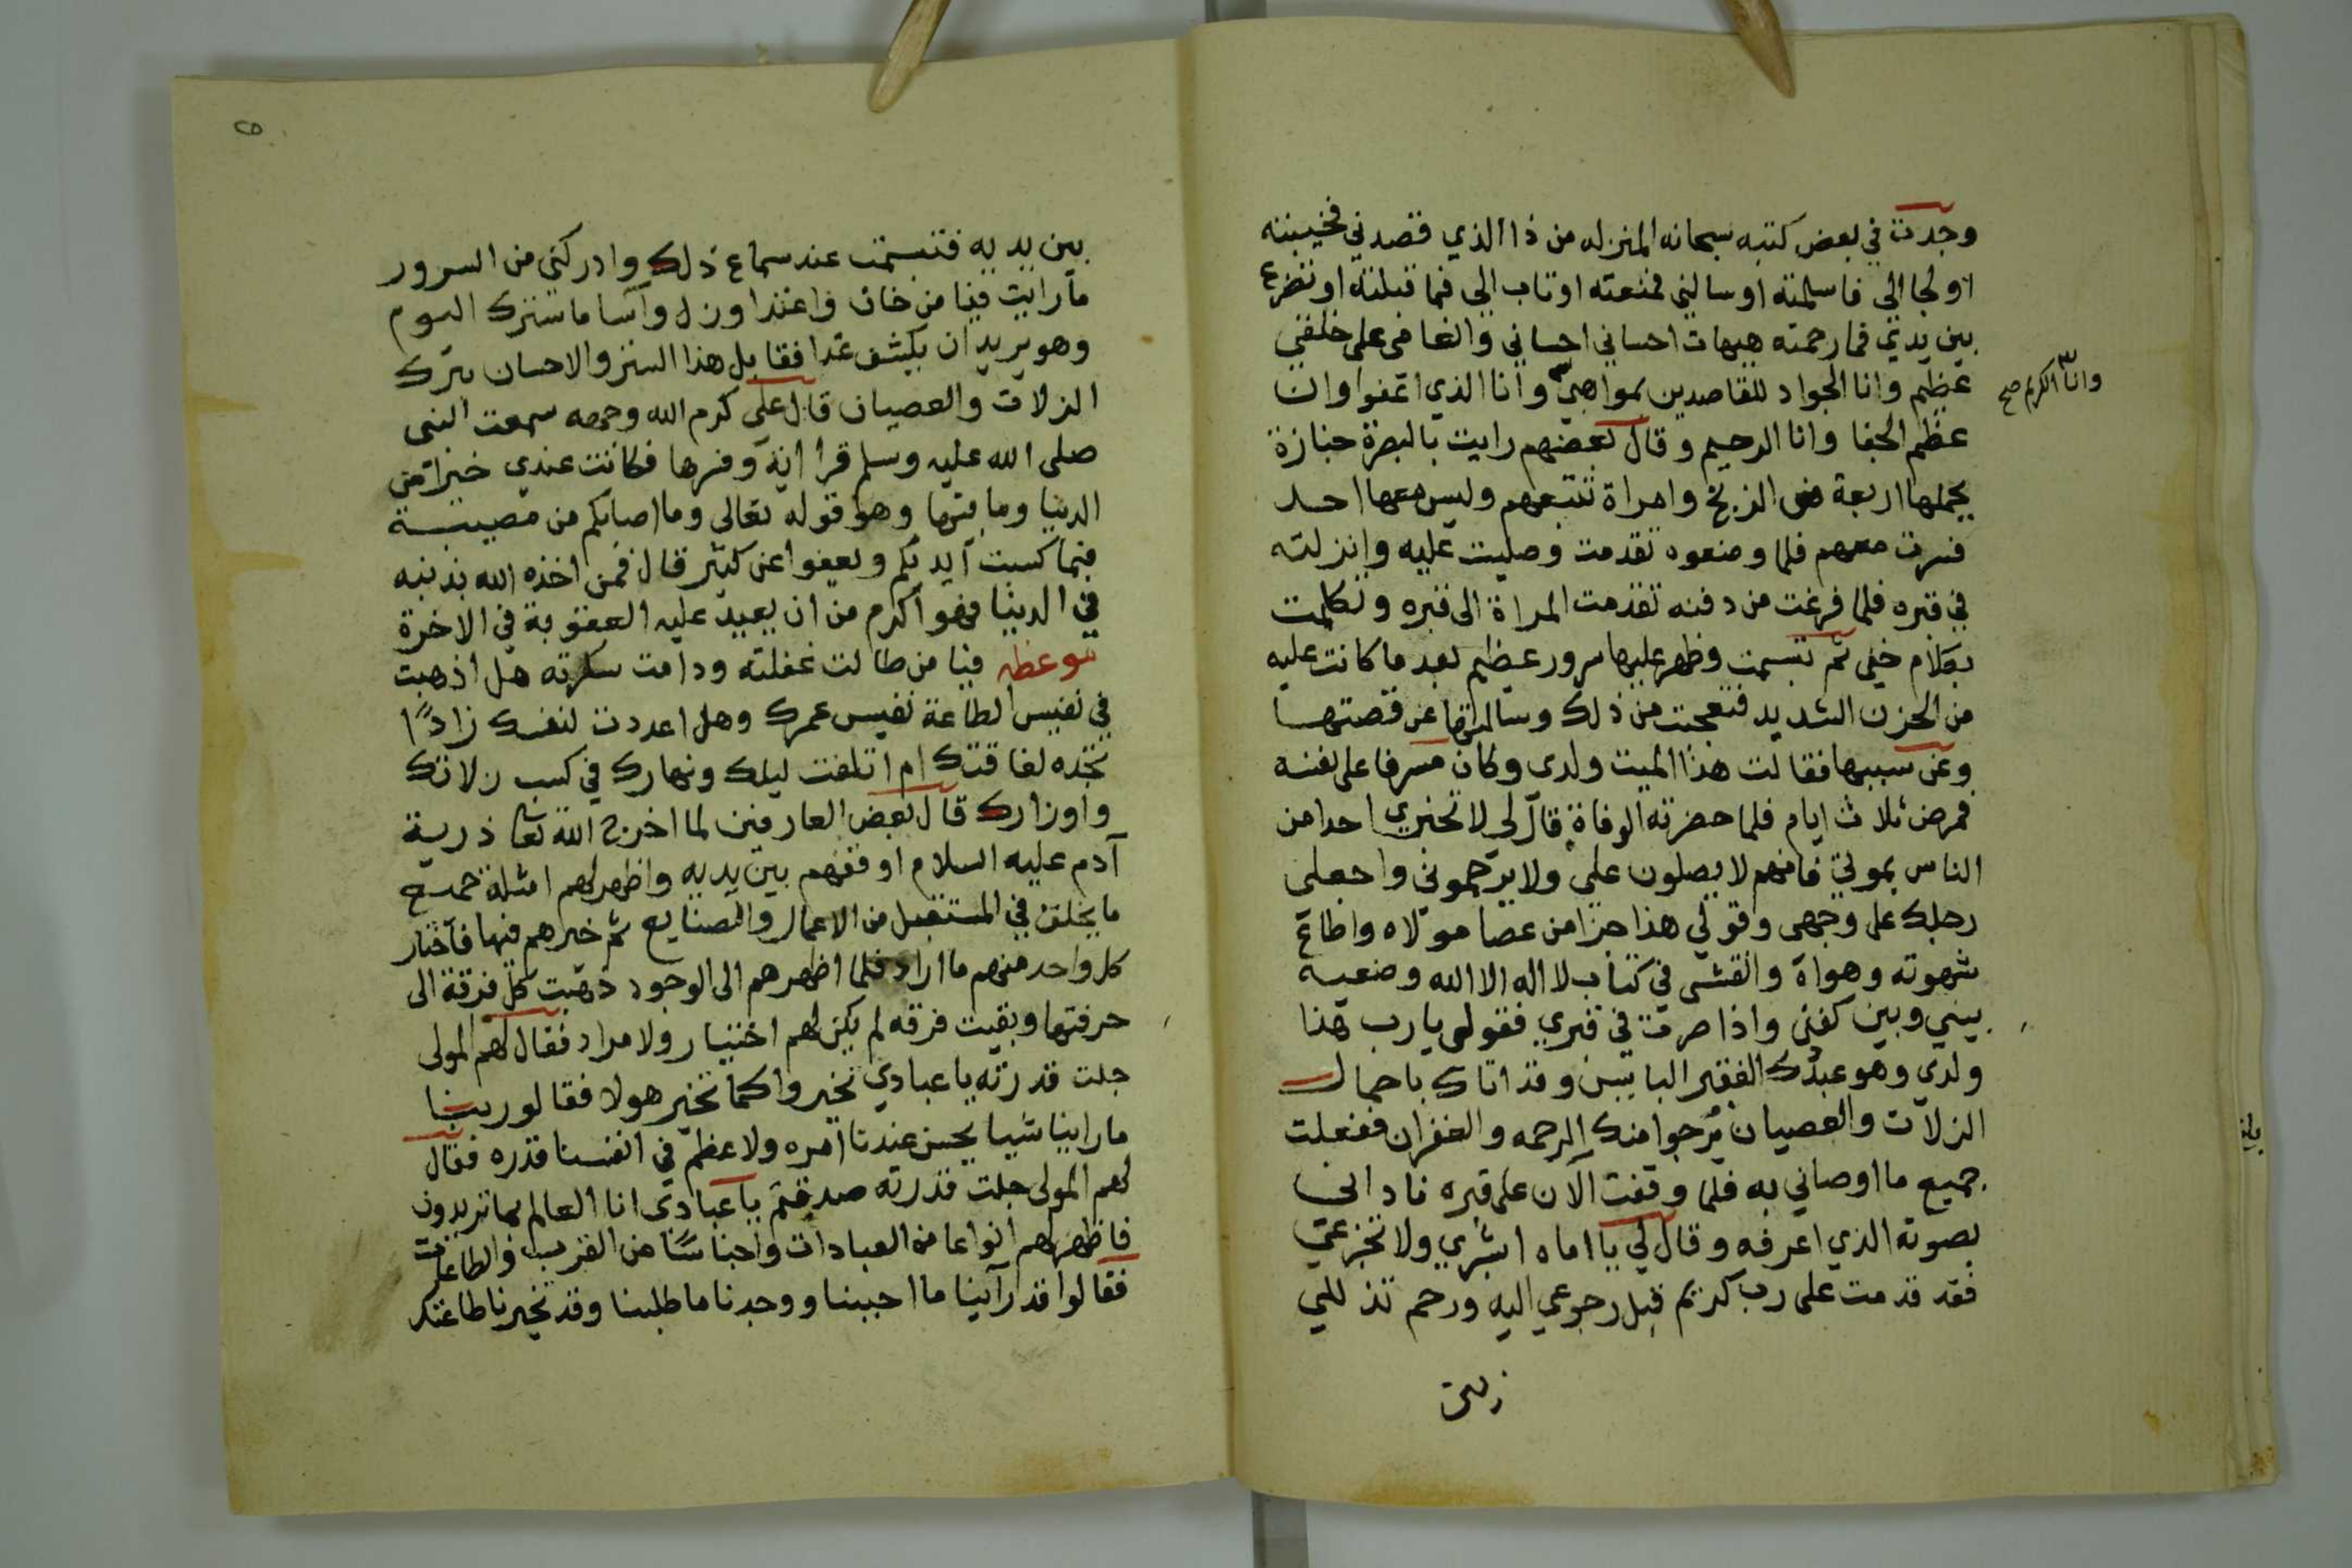 وجدت في بعض كتبه سبحانه المنزله من ذا الذي قصدني فخيبته
او لجا الي فاسلمته او سالني فمنعته او تاب الي فما قبلته او تضرع
بين يدي فما رحمته هيهات احساني احساني والغامى على خلقي
عظيم وانا الجواد للقاصدين بمواهبي وانا الذي اعفوا وان
وانا الكريم صح
عظم الجفا وانا الرحيم وقال بعضهم رايت بالبصرة جنازة
يحملها اربعة من الزنج وامراة تتبعهم وليس معها احد
فسرت معهم فلما وضعوه تقدمت وصليت عليه وانزلته
في قبره فلما فرغت من دفنه تقدمت المراة الى قبره وتكلمت
بكلام خفي ثم تبسمت وظهر عليها سرور عظيم بعد ما كانت عليه
من الحزن الشديد فتعجبت من ذلك وسالتها عن قصتها
وعن سببها فقالت هذا الميت ولدى وكان مسرفا على نفسه
فمرض ثلاث ايام فلما حضرته الوفاة قال لي لا تخبري احدا من
الناس بموتي فانهم لا يصلون علي ولا يترحموني واجعلى
رجلك على وجهى وقولي هذا جزا من عصا مولاه واطاع
شهوته وهواه وانقشى في كتاب لا اله الا الله وضعيه
بيني وبين كفنى واذا صرت في قبري فقولى يا رب هذا
ولدى وهو عبدك الفقير البايس وقد اتاك باحمال
الزلات والعصيان يرجوا منك الرحمه والغفران ففعلت
جميع ما اوصاني به فلما وقفت الآن على قبره نادانى
بصوته الذي اعرفه وقال لي يا اماه ابشري ولا تجزعي
فقد قدمت على رب كريم قبل رجوعي اليه ورحم تذللي
٥
بين يديه فتبسمت عند سماع ذلك وادركنى من السرور
ما رايت فيا من خان واعتدا وزل واسا ما ستترك اليوم
وهو يريد ان يكشف غدا فقابل هذا الستر والاحسان بترك
الزلات والعصيان قال على كرم الله وجهه سمعت النبى
صلى الله عليه وسلم قرا اية وفسرها فكانت عندي خيرا من
الدنيا وما فيها وهو قوله تعالى وما اصابكم من مصيبة
فبما كسبت ايديكم ويعفوا عن كثير قال فمن اخذه الله بذنبه
في الدنيا فهو اكرم من ان يعيد عليه العقوبة في الاخرة
موعظه فيا من طالت غفلته ودامت سكرته هل اذهبت
في نفيس الطاعة نفيس عمرك وهل اعددت لنفسك زادًا
تجده لفاقتك ام اتلفت ليلك ونهارك في كسب زلاتك
واوزارك قال بعض العارفين لما اخرج الله تعا ذرية
آدم عليه السلام اوقفهم بين يديه واظهر لهم امثلة جميع
ما يخلق في المستقبل من الاعمال والصنايع ثم خيرهم فيها فاختار
كل واحد منهم ما اراد فلما اظهرهم الى الوجود ذهبت كل فرقة الى
حرفتها وبقيت فرقه لم يكن لهم اختيار ولا مراد فقال لهم المولى
جلت قدرته يا عبادي تخيروا كما تخير هولا فقالو ربنا
ما راينا شيا يحسن عندنا امره ولا عظم في انفسنا قدره فقال
لهم المولى جلت قدرته صدقتم يا عبادى انا العالم بما تريدون
فاظهر لهم انواعا من العبادات واجناسًا من القرب والطاعات
فقالوا قد رآينا ما احببنا ووجدنا ما طلبنا وقد تخيرنا طاعتك